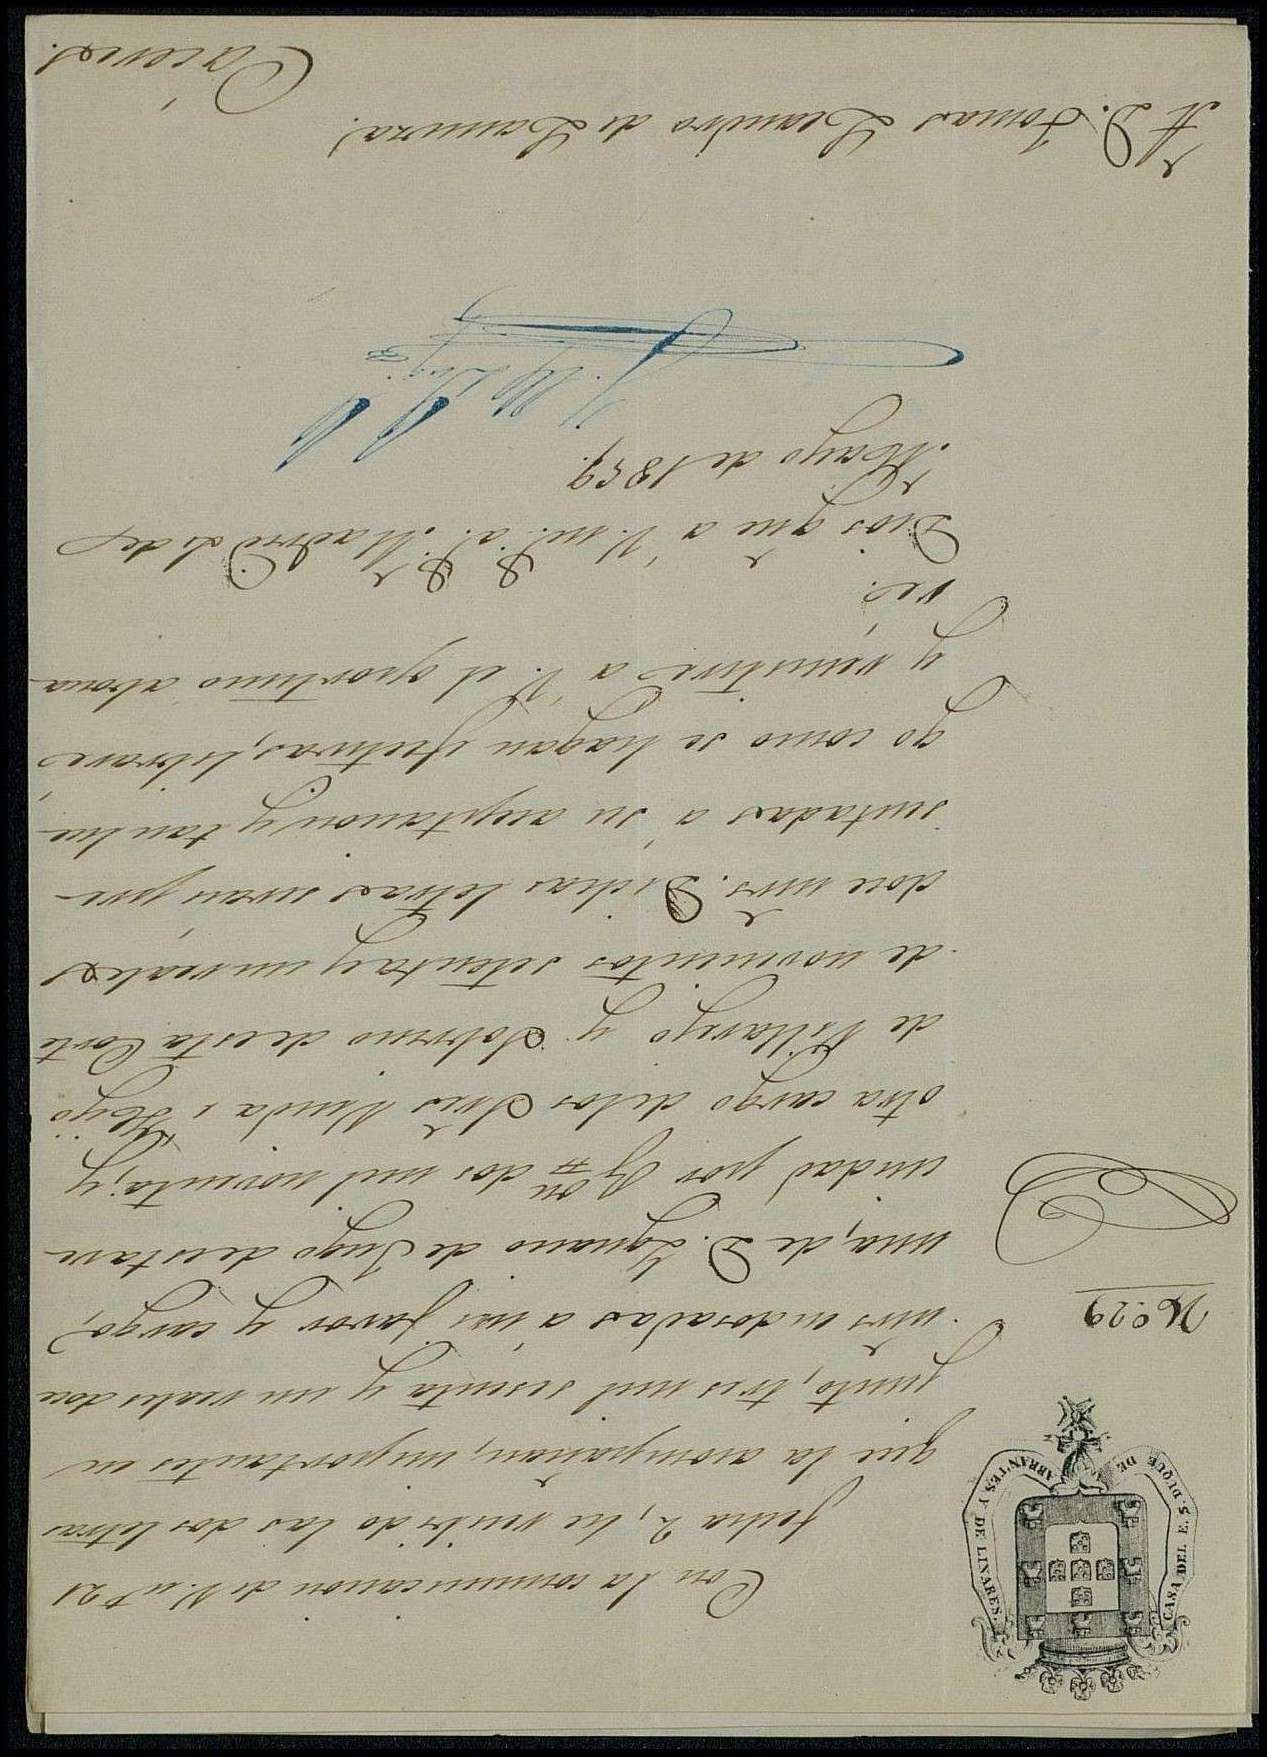 CASA DEL E. S. DUQUE DE ABRANTES Y DE LINARES.
Nº 29
Con la comunicacion de V. nº 21
fecha 2, he recibido las dos letras
que la acompañan, importantes en
junto, tres mil sesenta y un reales doce
mrs endosadas a mi favor y cargo,
una, de D. Ignacio de Inigo de esta ve-
cindad por Rvon dos mil noventa, y
otra cargo de los Sres Viuda e Hijo
de Villarejo y Sobrino de esta Corte
de novecientos setenta y un reales
doce mrs. Dichas letras seran pre-
sentadas a su aceptacion y tan lue-
go como se hagan efectivas, librare
y remitiré a V. el oportuno abona-
ré.
Dios gue a V. ms. as. Madrid 5 de
Mayo de 1859.
A D. Tomas Leandro de Lamora.
Cáceres.